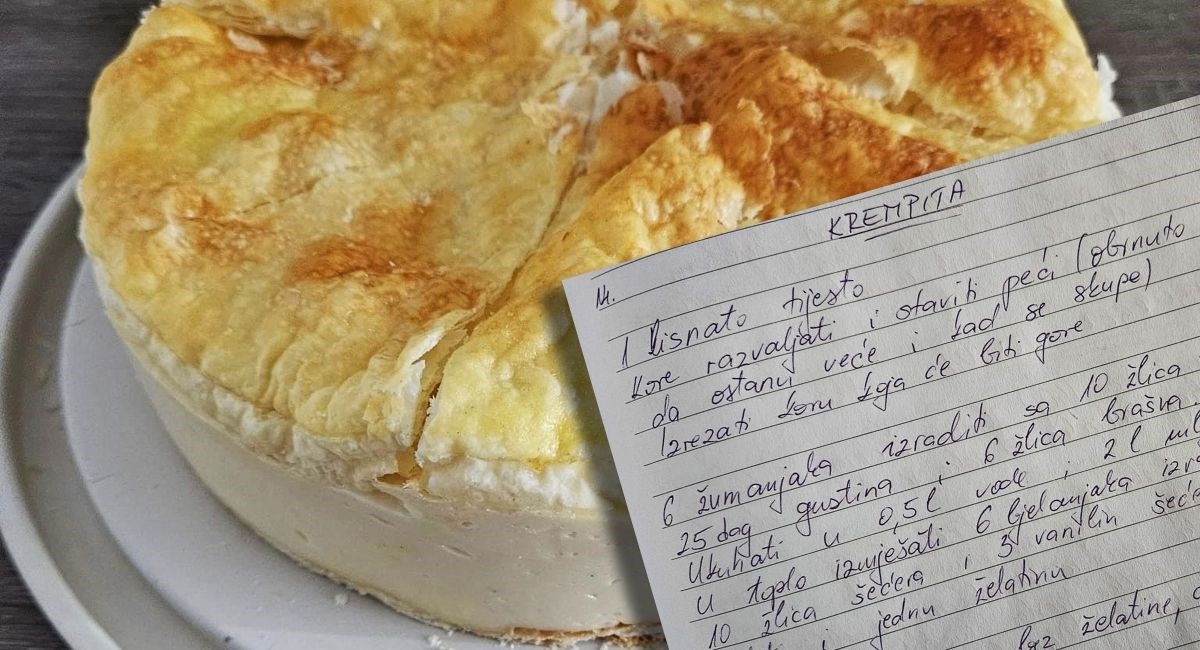 KREMPITA
M.
1 lisnato tijesto
kore razvaljati i staviti peći (obrnuto
da ostanu veće i kad se skupe)
Izrezati koru koja će biti gore
6 žumanjaka izraditi sa 10 žlica
25 dag gustina i 6 žlica brašna.
Ukuhati u 0,5 l vode i 2 l
U toplo izmješati 6 bjelanjaka
10 žlica šećera i 3 vanilin
i jednu želatinu
bez želatine,